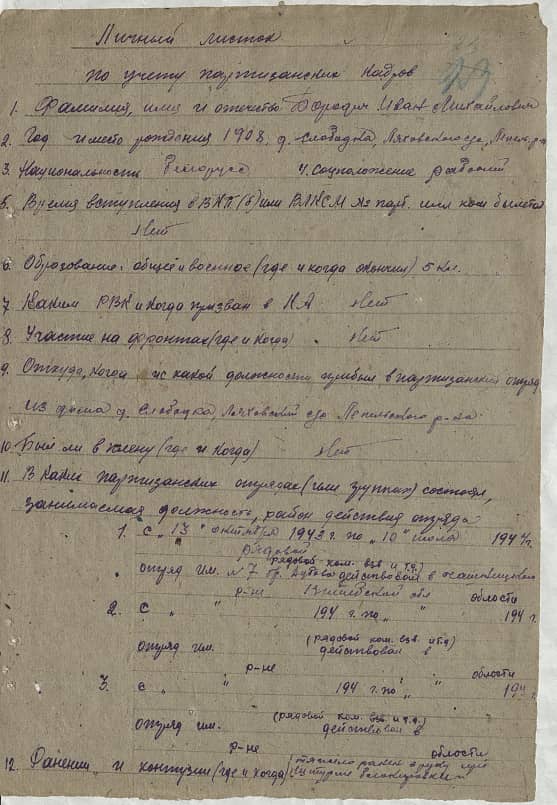 Личный листок
по учету партизанских кадров
1. Фамилия, имя и отчество Бородич Иван Михайлович
2. Год и место рождения 1908, д. Слободка, Ляховского с/с,
3. Национальность Белорусс 4. Соцположение рабочий
5. Время вступления в ВКП(б) или ВЛКСМ № парт. или ком билета
Нет
6. Образование: общее и военное (где и когда окончил) 5 кл.
7. Каким РВК и когда призван в КА Нет
8. Участие на фронтах (где и когда) Нет
9. Откуда, когда и с какой должности прибыл в партизанский отряд
из дома д. Слободка, Ляховский с/с Лепельского р-на
10. Был ли в плену (где и когда) Нет
11. В каких партизанских отрядах (или группах) состоял,
занимаемая должность, район действия отряда
1. с "13" октября 1943 г. по "10" 1944 г.
рядовой
(рядовой ком. взв. и т.д.)
отряд им. № 7 бр. действовал в
р-не области
2. с " " 194 г. по " " 194 г.
(рядовой ком. взв. и т.д.)
отряд им. действовал в
р-не области
3. с " " 194 г. по " " 194 г.
(рядовой ком. взв. и т.д.)
отряд им. действовал в
р-не области
12. Ранения и контузии (где и когда) тяжело ранен в руку